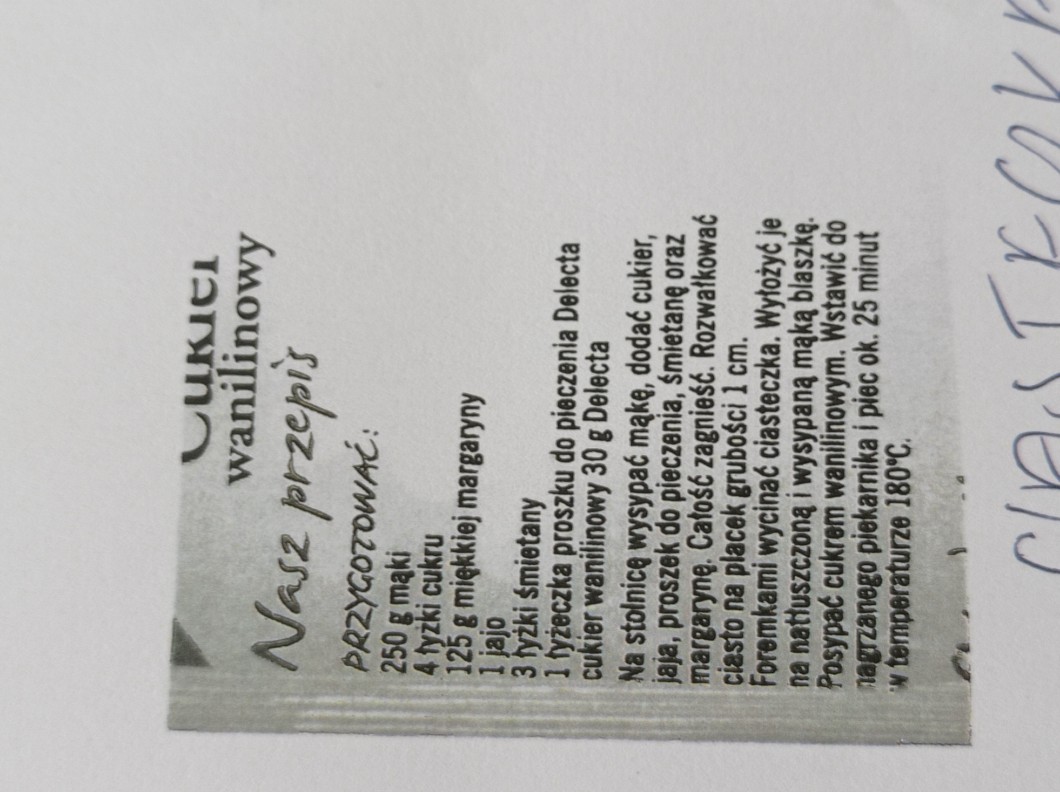 Cukier
wanilinowy
Nasz przepis
PRZYGOTOWAĆ:
250 g mąki
4 łyżki cukru
125 g miękkiej margaryny
1 jajo
3 łyżki śmietany
1 łyżeczka proszku do pieczenia Delecta
cukier wanilinowy 30 g Delecta
Na stolnicę wysypać mąkę, dodać cukier,
jaja, proszek do pieczenia, śmietanę oraz
margarynę. Całość zagnieść. Rozwałkować
ciasto na placek grubości 1 cm.
Foremkami wycinać ciasteczka. Wyłożyć je
na natłuszczoną i wysypaną mąką blaszkę.
Posypać cukrem wanilinowym. Wstawić do
nagrzanego piekarnika i piec ok. 25 minut
w temperaturze 180°C.